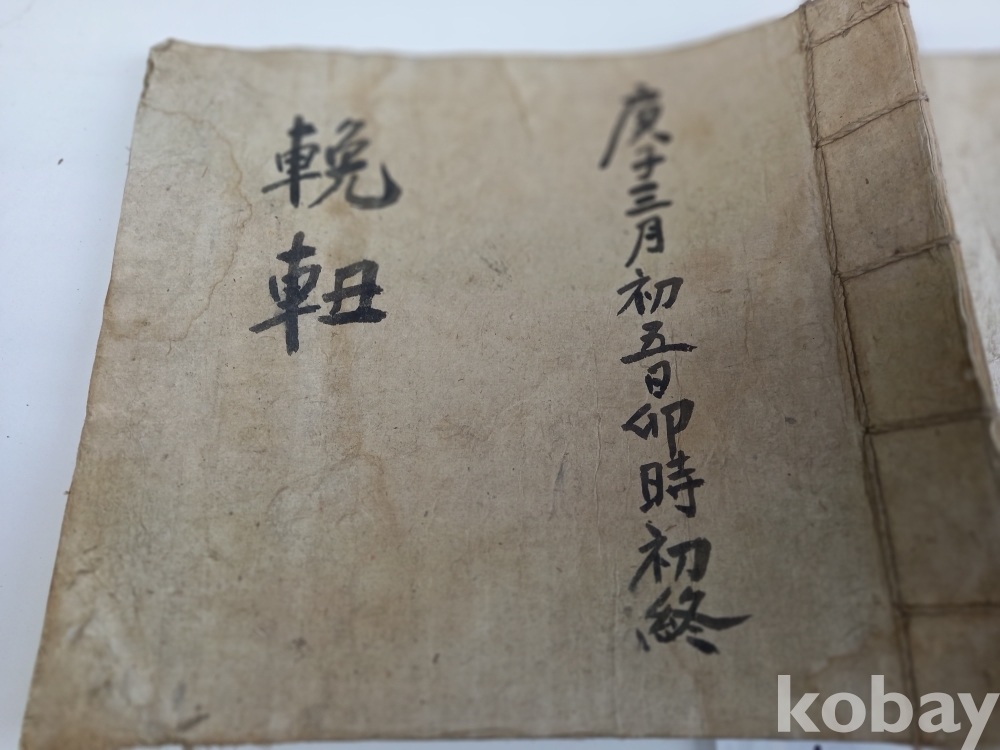 庚子三月初五日卯時初終
輓
𨋀
kobay